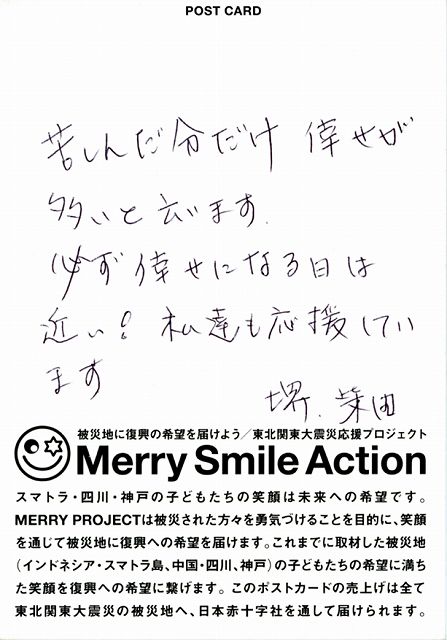 POST CARD
苦しんだ分だけ 倖せが
多いと云います.
必ず倖せになる日は
近い! 私達も応援してい
ます
堺. 柴田
被災地に復興の希望を届けよう／東北関東大震災応援プロジェクト
Merry Smile Action
スマトラ・四川・神戸の子どもたちの笑顔は未来への希望です。
MERRY PROJECTは被災された方々を勇気づけることを目的に、笑顔
を通じて被災地に復興への希望を届けます。これまでに取材した被災地
（インドネシア・スマトラ島、中国・四川、神戸）の子どもたちの希望に満ち
た笑顔を復興への希望に繋げます。このポストカードの売上げは全て
東北関東大震災の被災地へ、日本赤十字社を通して届けられます。